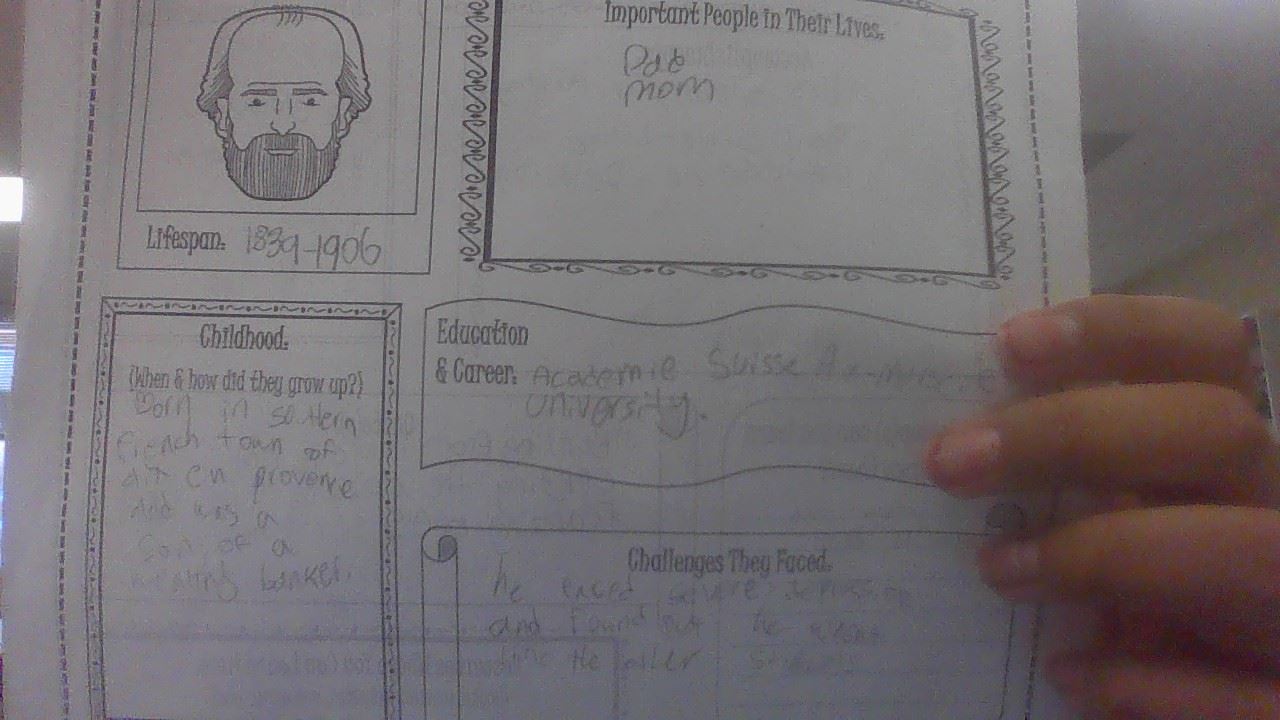 Important People in Their Lives:
Dad
mom
Lifespan: 1839-1906
Childhood:
(When & how did they grow up?)
Born in southern
french town of
aix en provence
and was a
son of a
banker.
Education
& Career: Academie Suisse Aix-
University.
Challenges They Faced:
he severe
and found out he
like the other